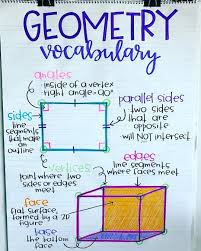 GEOMETRY
vocabulary
angles
inside of a vertex
right angle = 90°
parallel sides
two sides
that are
opposite
will NOT intersect
sides
line
segments
that make
an outline
vertices
point where two
sides or edges
meet
edges
line segments
where faces meet
face
flat surface
formed by a 2D
figure
base
the bottom
face